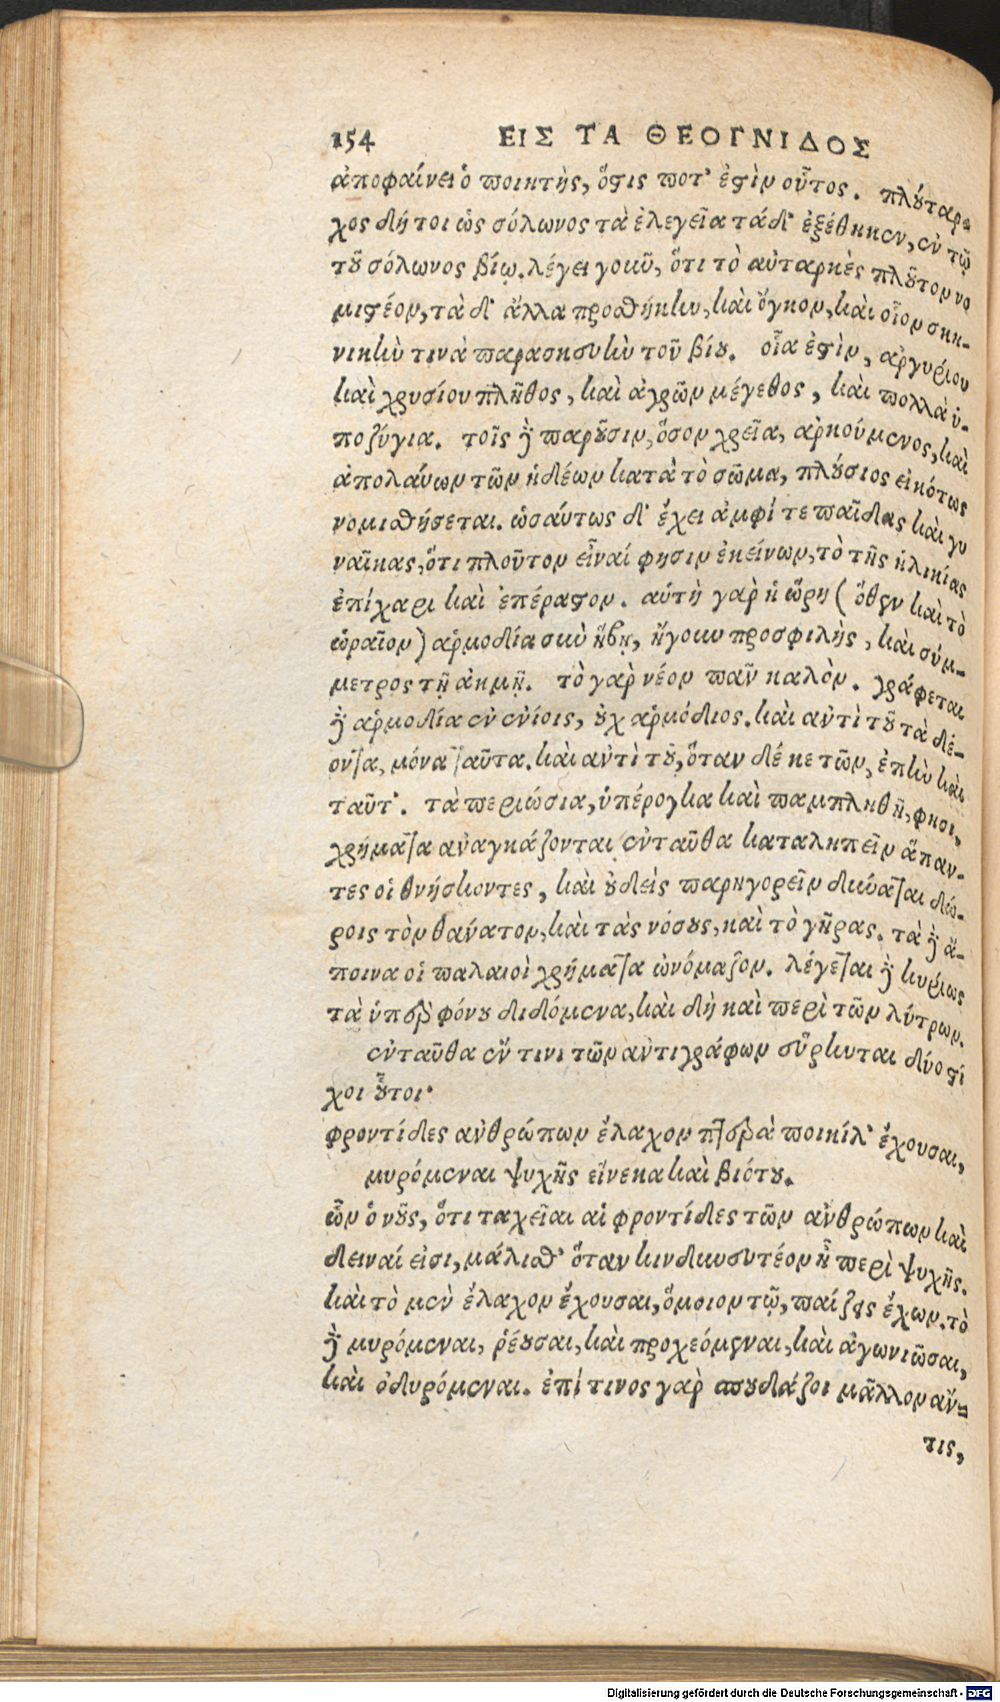 154 ΕΙΣ ΤΑ ΘΕΟΓΝΙΔΟΣ
ἀποφαίνει ὁ ποιητὴς, ὅστις ποτ' ἐστὶν οὗτος. πλούταρ-
χος δή τοι ὡς σόλωνος τὰ ἐλεγεῖα τάδ' ἐξέθηκεν, ἐν τῷ
τοῦ σόλωνος βίῳ. λέγει γοῦν, ὅτι τὸ αὐταρκὲς πλοῦτον νο
μιστέον, τὰ δ' ἄλλα προσθήκην, καὶ ὄγκον, καὶ οἷον σκη-
νικήν τινὰ παρασκευὴν τοῦ βίου. οἷα ἐστὶν, ἀργυρίου
καὶ χρυσίου πλῆθος, καὶ ἀγρῶν μέγεθος, καὶ πολλὰ ὑ-
ποζύγια. τοῖς δὲ παροῦσιν, ὅσον χρεία, ἀρκούμενος, καὶ
ἀπολαύων τῶν ἡδέων κατὰ τὸ σῶμα, πλούσιος εἰκότως
νομισθήσεται. ὡσαύτως δ' ἔχει ἀμφί τε παῖδας καὶ γυ
ναῖκας, ὅτι πλοῦτον εἶναί φησιν ἐκείνων, τὸ τῆς ἡλικίας
ἐπίχαρι καὶ ἐπέραστον. αὕτη γὰρ ἡ ὥρη (ὅθεν καὶ τὸ
ὡραῖον) ἁρμοδία σὺν ἥβῃ, ἤγουν προσφιλὴς, καὶ σύμ-
μετρος τῇ ἀκμῇ. τὸ γὰρ νέον πᾶν καλὸν. γράφεται
δὲ ἁρμοδία ἐν ἐνίοις, οὐχ ἁρμόδιος. καὶ ἀντὶ τοῦ τὰ δέ-
οντα, μόνα ταῦτα. καὶ ἀντὶ τοῦ, ὅταν δέ κε τῶν, ἐπὴν καὶ
ταῦτ'. τὰ περιώσια, ὑπέρογκα καὶ παμπληθῆ, φησι,
χρήματα ἀναγκάζονται ἐνταῦθα καταλιπεῖν ἅπαν-
τες οἱ θνήσκοντες, καὶ οὐδεὶς παρηγορεῖν δύναται δώ-
ροις τὸν θάνατον, καὶ τὰς νόσους, καὶ τὸ γῆρας. τὰ δὲ ἄ-
ποινα οἱ παλαιοὶ χρήματα ὠνόμαζον. λέγεται δὲ κυρίως
τὰ ὑπὲρ φόνου διδόμενα, καὶ δὴ καὶ περὶ τῶν λύτρων.
ἐνταῦθα ἔν τινι τῶν ἀντιγράφων εὕρηνται δύο στί
χοι οὗτοι·
φροντίδες ἀνθρώπων ἔλαχον πτερὰ ποικίλ' ἔχουσαι,
μυρόμεναι ψυχῆς εἵνεκα καὶ βιότου.
ὧν ὁ νοῦς, ὅτι ταχεῖαι αἱ φροντίδες τῶν ἀνθρώπων καὶ
δειναί εἰσι, μάλισθ' ὅταν κινδυνευτέον ᾖ περὶ ψυχῆς.
καὶ τὸ μὲν ἔλαχον ἔχουσαι, ὅμοιον τῷ, παίζεις ἔχων. τὸ
δὲ μυρόμεναι, ῥέουσαι, καὶ προχεόμεναι, καὶ ἀγωνιῶσαι,
καὶ ὀδυρόμεναι. ἐπί τινος γὰρ σπουδάζοι μᾶλλον ἄν-
τις,
Digitalisierung gefördert durch die Deutsche Forschungsgemeinschaft - DFG